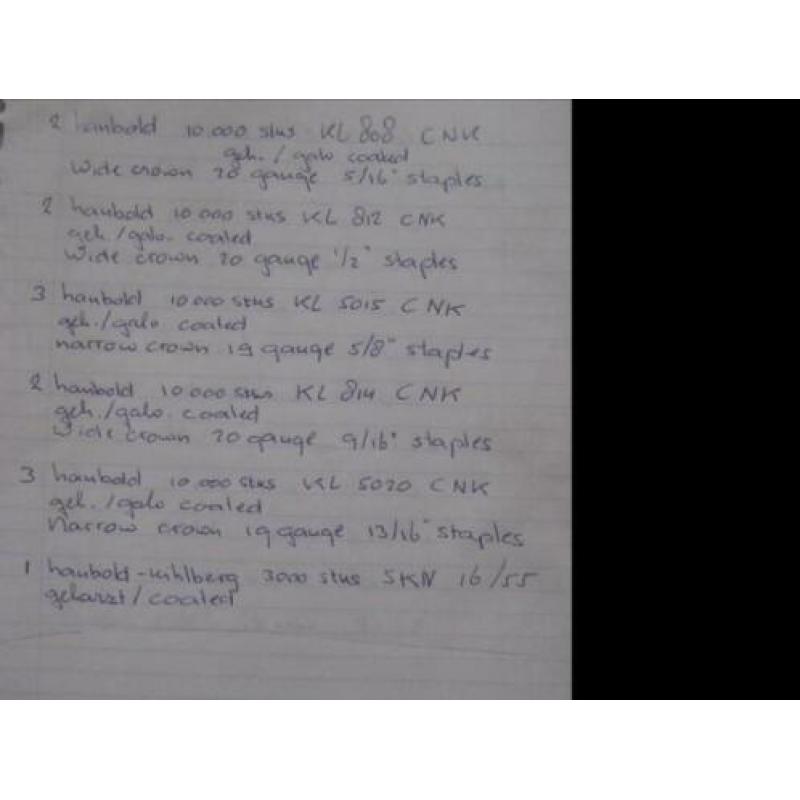 2 haubold 10.000 stus KL 808 CNK
geh. / galv coated
Wide crown 20 gauge 5/16" staples
2 haubold 10000 stus KL 812 CNK
geh./galv. coated
Wide crown 20 gauge 1/2" staples
3 haubold 10000 stus KL 5015 CNK
geh./galv coated
narrow crown 19 gauge 5/8" staples
2 haubold 10000 stus KL 814 CNK
geh./galv. coated
Wide crown 20 gauge 9/16" staples
3 haubold 10.000 stus KL 5020 CNK
geh./galv coated
Narrow crown 19 gauge 13/16" staples
1 haubold-kihlberg 3000 stus SKN 16/55
geharzt/coated